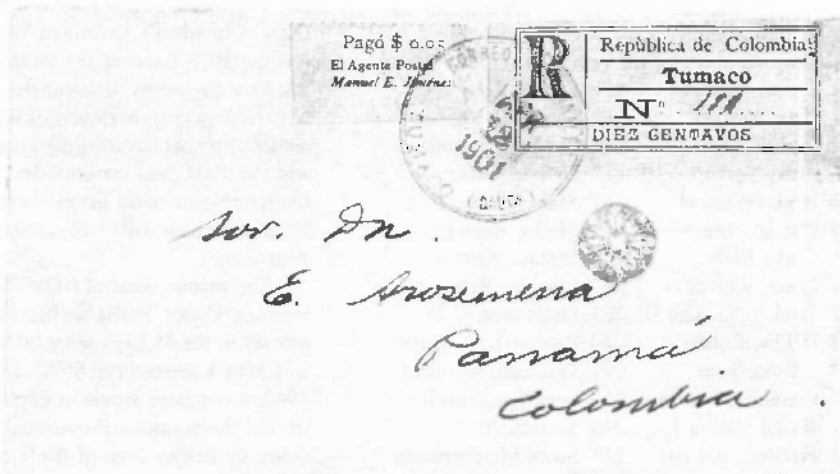 Pagó $ 0.05
El Agente Postal
Manuel E. Jiménez
R
República de Colombia
Tumaco
No
DIEZ CENTAVOS
1901
Sor. Dn.
E. Arosemena
Panamá.
Colombia.